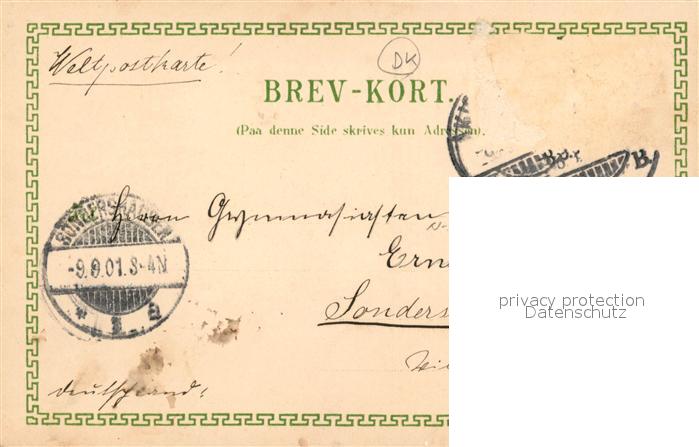 Weltpostkarte!
DK
BREV-KORT.
(Paa denne Side skrives kun Adressen).
Til Herrn Gymnasiasten
Ern
Sonders
SONDERSHAUSEN
-9.9.01.3-4N
* a
B.
privacy protection
Datenschutz
Deutschland!